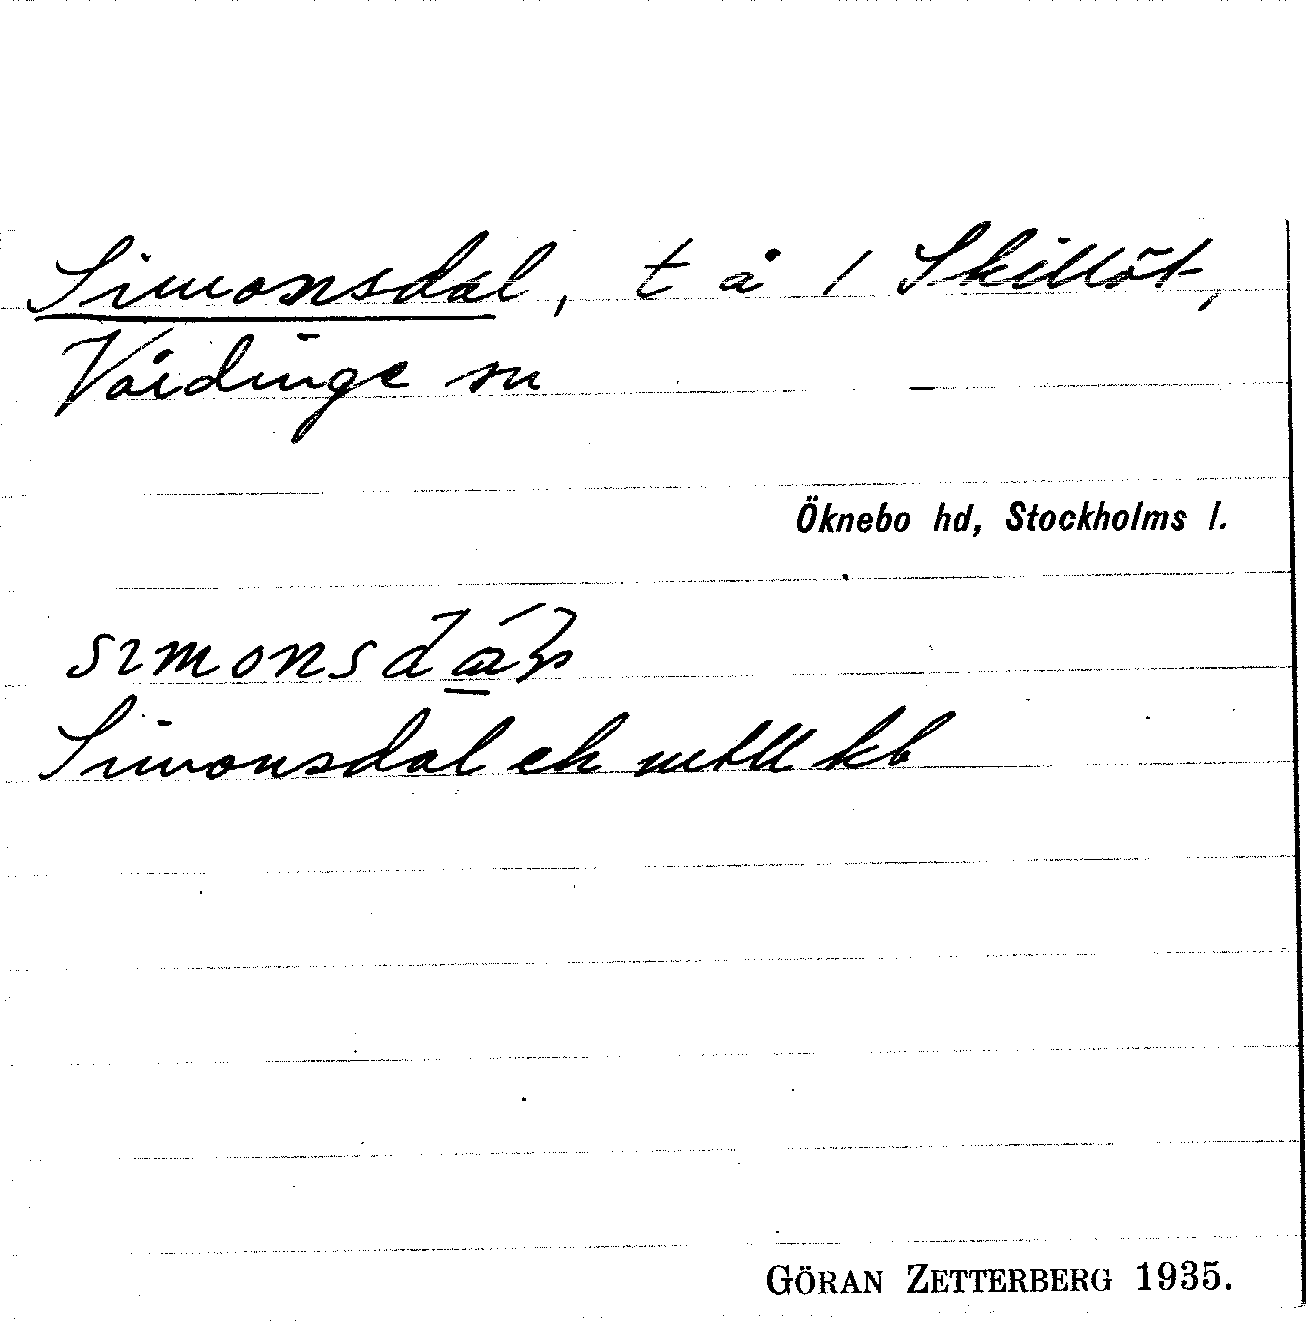 Simonsdal, t å 1 Skillöt,
Vårdinge sn
Öknebo hd, Stockholms l.
Simonsdal ek mtll kb
GÖRAN ZETTERBERG 1935.